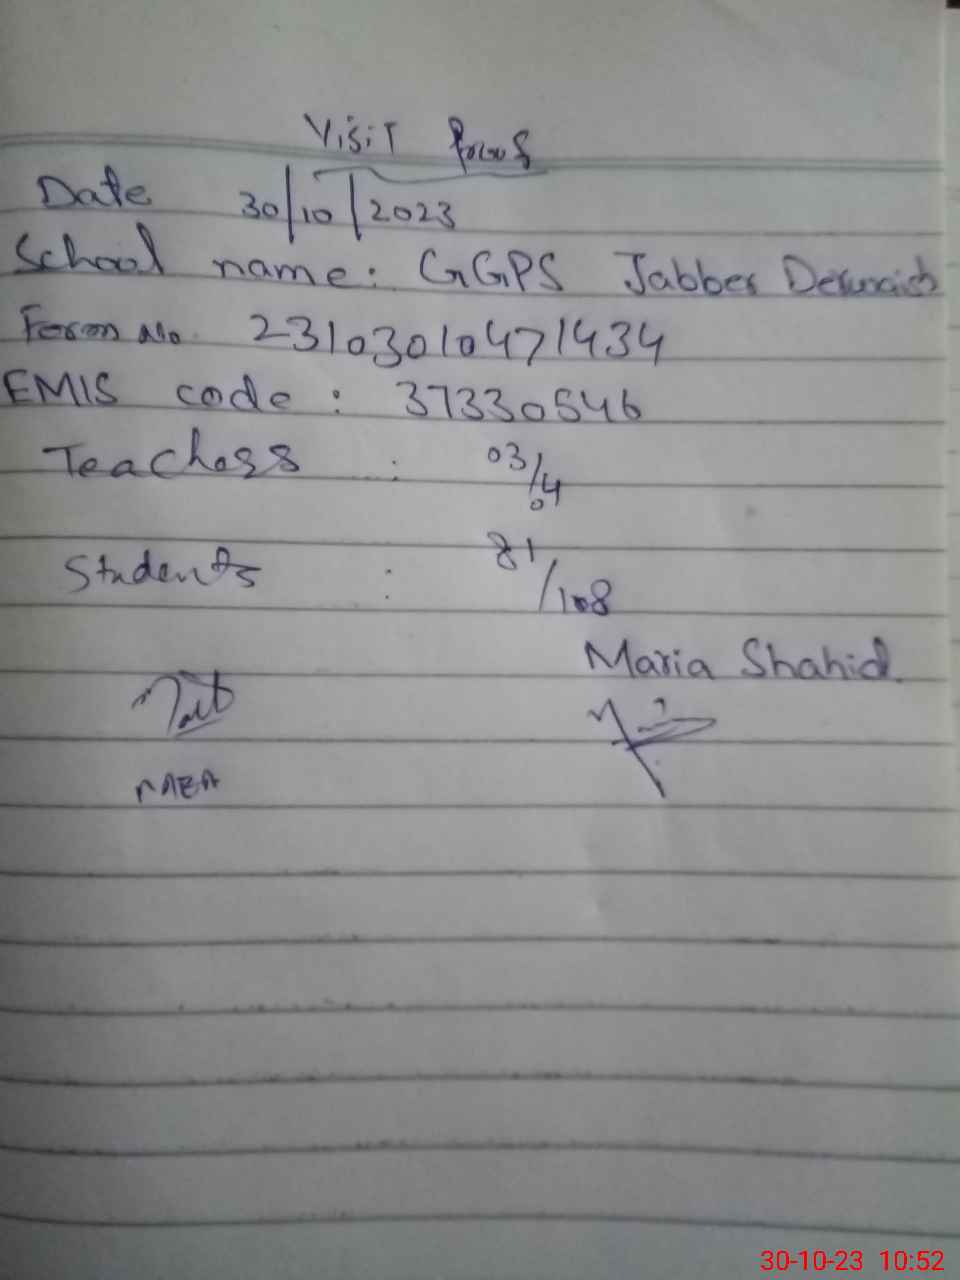 Visit Proof
Date 30/10/2023
School name: GGPS Jabber Derwaish
Form No. 23103010471434
EMIS code: 37330546
Teachers : 03/04
Students : 81/108
Maria Shahid
30-10-23 10:52